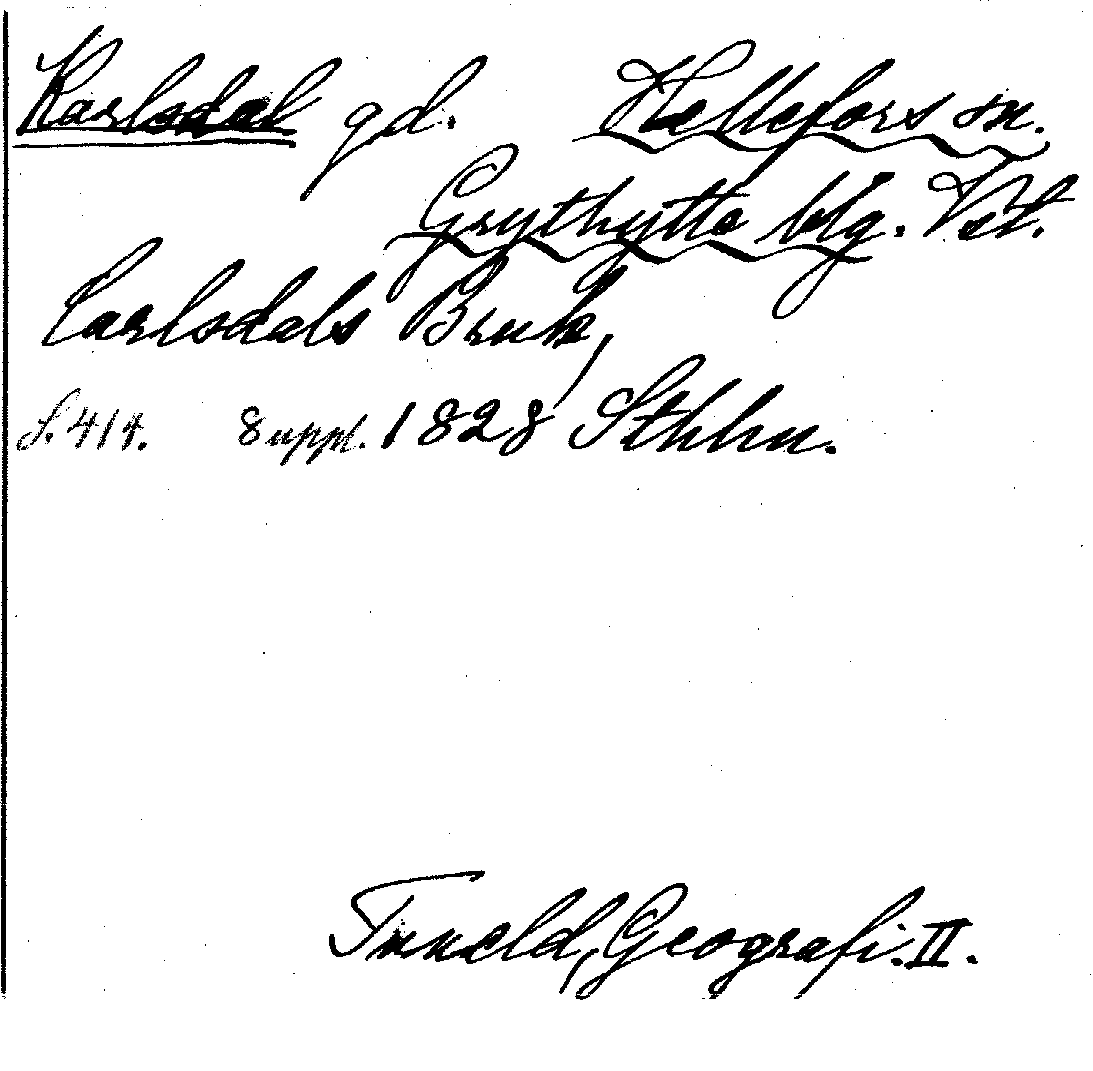 Karlsdal gd. Hellefors sn.
Grythytte blg. Vstl.
Carlsdals Bruk,
S. 414. 8 uppl. 1828 Sthlm.
Tuneld, Geografi. II.